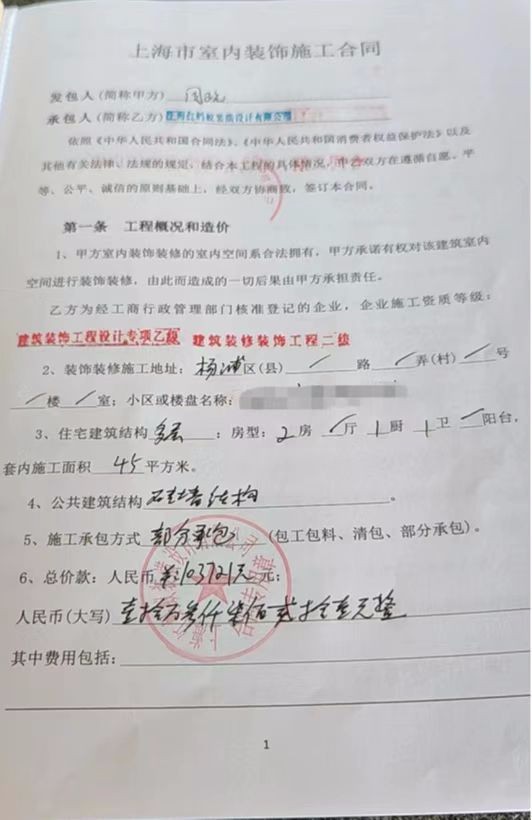 上海市室内装饰施工合同
发包人(简称甲方)
承包人(简称乙方) 装饰设计有限公司
依照《中华人民共和国合同法》、《中华人民共和国消费者权益保护法》以及
其他有关法律、法规的规定,结合本工程的具体情况,甲乙双方在遵循自愿、平
等、公平、诚信的原则基础上,经双方协商一致,签订本合同。
第一条 工程概况和造价
1、甲方室内装饰装修的室内空间系合法拥有,甲方承诺有权对该建筑室内
空间进行装饰装修,由此而造成的一切后果由甲方承担责任。
乙方为经工商行政管理部门核准登记的企业,企业施工资质等级:
建筑装饰工程设计专项乙级 建筑装修装饰工程二级
2、装饰装修施工地址:杨浦区(县) / 路 / 弄(村) / 号
/ 楼 / 室;小区或楼盘名称:
3、住宅建筑结构 多层 ;房型:2房 / 厅 1 厨 1 卫 / 阳台,
套内施工面积 45 平方米。
4、公共建筑结构 砖墙结构 。
5、施工承包方式 部分承包 (包工包料、清包、部分承包)。
6、总价款:人民币 103721元 元;
人民币(大写) 壹拾万叁仟柒佰贰拾壹元整
其中费用包括:
1